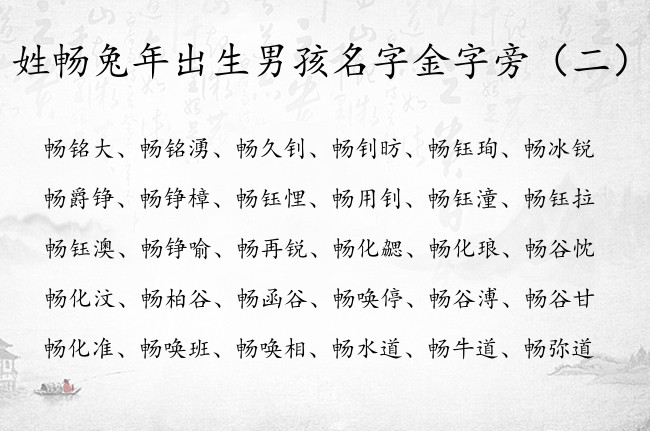 姓畅兔年出生男孩名字金字旁（二）
畅铭大、畅铭湧、畅久钊、畅钊昉、畅钰珣、畅冰锐
畅爵铮、畅铮樟、畅钰悝、畅用钊、畅钰潼、畅钰拉
畅钰澳、畅铮喻、畅再锐、畅化勰、畅化琅、畅谷忱
畅化汶、畅柏谷、畅函谷、畅唤停、畅谷溥、畅谷甘
畅化准、畅唤班、畅唤相、畅水道、畅牛道、畅弥道